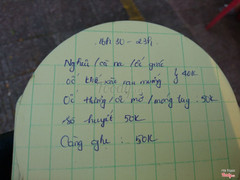 16h30 - 23h
Nghêu / ốc na / ốc giác
Ốc khế xào rau muống } 40K
Ốc thóng / ốc mỡ / móng tay 50K
Sò huyết 50K
Càng ghẹ : 50K